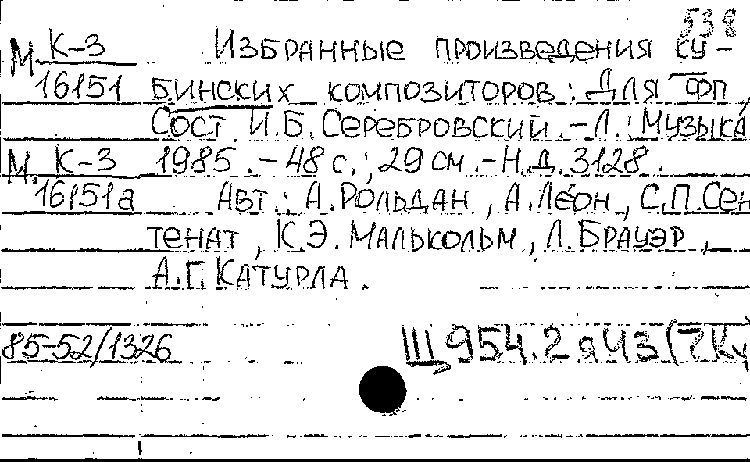 538
М К-3 Избранные произведения ку-
16151 бинских композиторов : Для фп /
Сост. И.Б. Серебровский. - Л. : Музыка
М. К-3 1985. - 48 с. ; 29 см. - Н.д. 3128.
16151а Авт.: А. Рольдан, А. Леон, С.П. Сен
тенат, К.Э. Малькольм, Л. Брауэр,
А.Г. Катурла.
85-52/1326 Щ954.2я43(7Ку